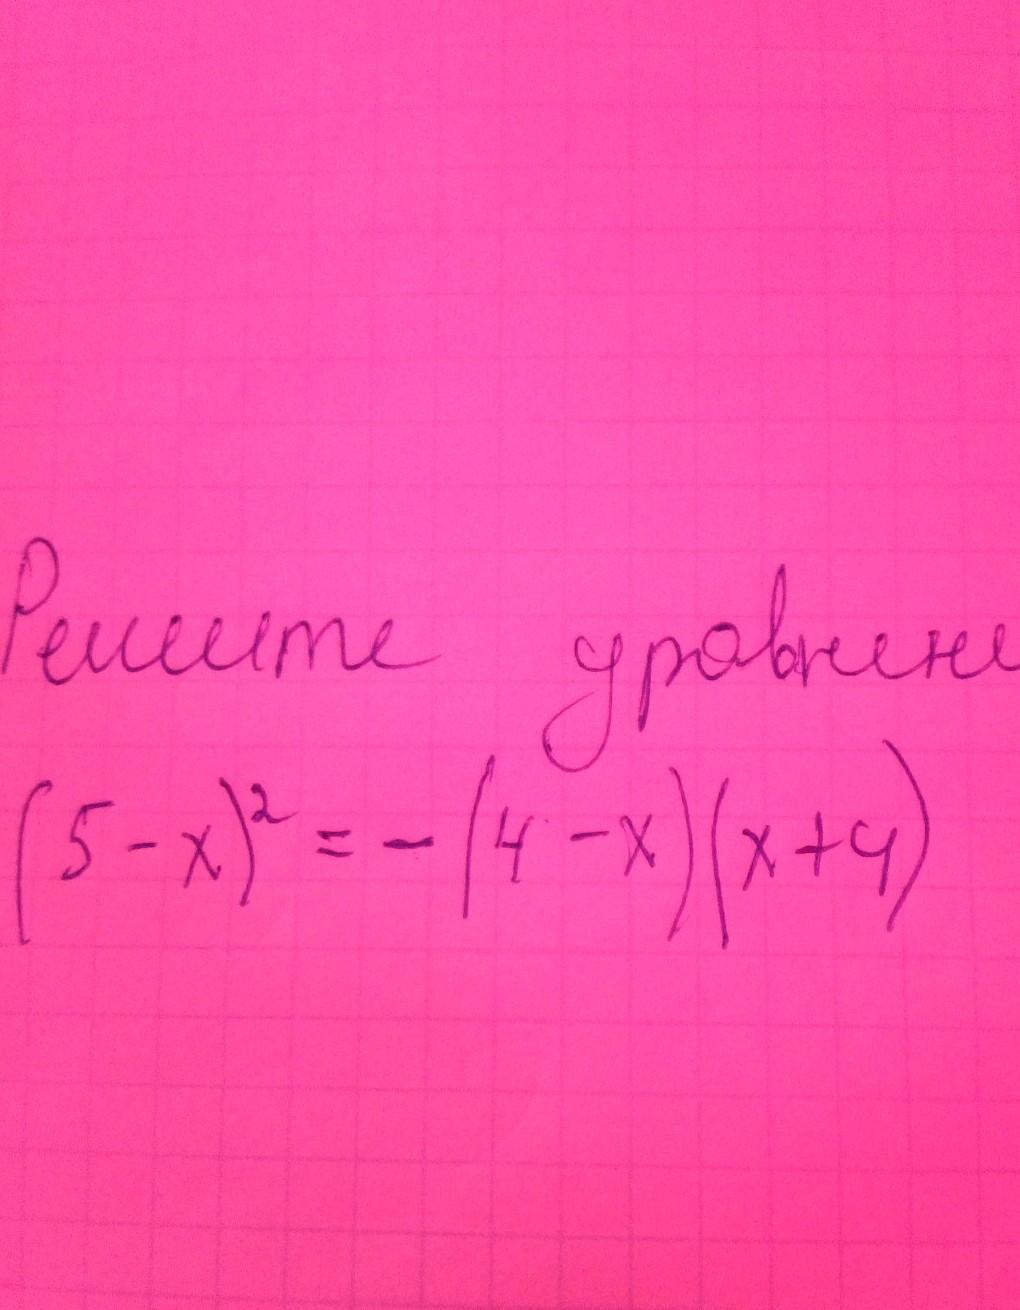 Решите уравнени
(5-x)² = -(4-x)(x+4)